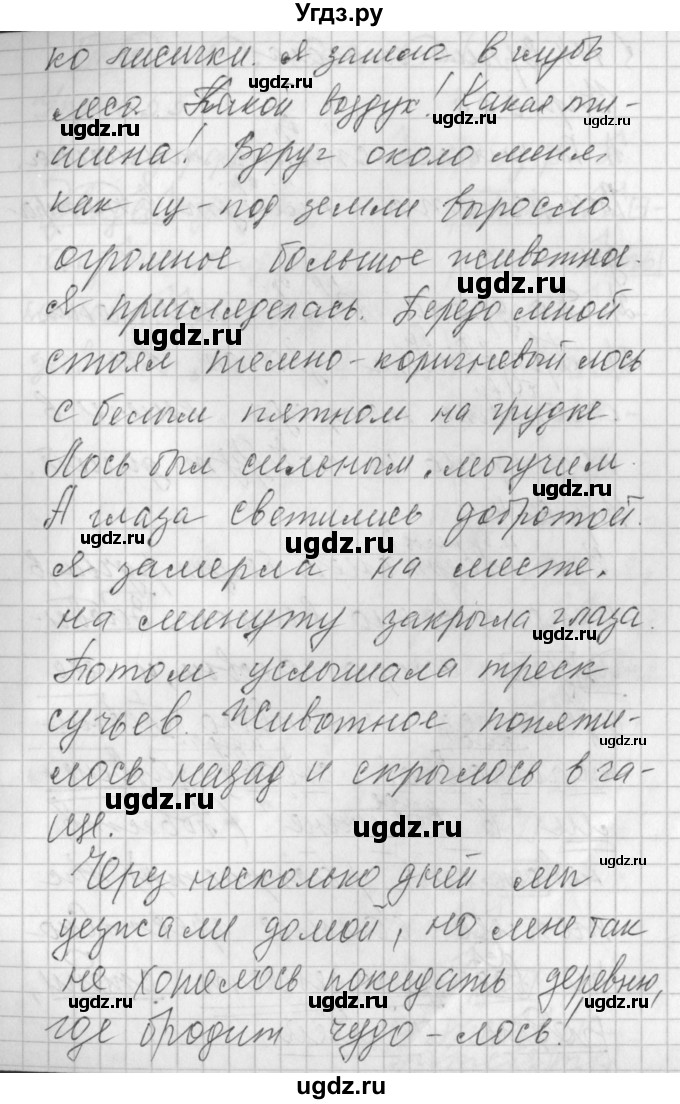 Угдз.ру
ко лисички. Я зашла в глубь
леса. Какой воздух! Какая ти-
ugdz.ru ugdz.ru ugdz.ru
шина! Вдруг около меня,
как из-под земли выросло
огромное большое животное.
ugdz.ru
Я пригляделась. Передо мной
ugdz.ru
стоял темно-коричневый лось
с белым пятном на грудке.
Лось был сильным, могучим.
ugdz.ru
А глаза светились добротой.
ugdz.ru ugdz.ru
Я замерла на месте,
на минуту закрыла глаза.
ugdz.ru
Потом услышала треск
сучьев. Животное попяти-
ugdz.ru
лось назад и скрылось в ча-
ugdz.ru
ще.
ugdz.ru
Через несколько дней мы
ugdz.ru
уезжали домой, но мне так
не хотелось покидать деревню,
ugdz.ru ugdz.ru ugdz.ru
где бродит чудо-лось!
ugdz.ru